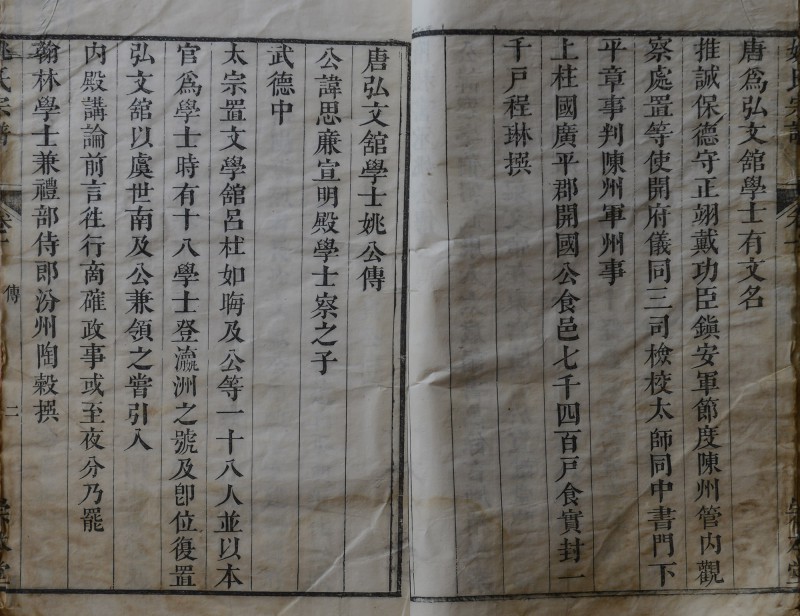 唐爲弘文舘學士有文名
推誠保德守正翊戴功臣鎭安軍節度陳州管內觀
察處置等使開府儀同三司檢校太師同中書門下
平章事判陳州軍州事
上柱國廣平郡開國公食邑七千四百戸食實封一
千戸程琳撰
唐弘文舘學士姚公傳
公諱思廉宣明殿學士察之子
武德中
太宗置文學舘召杜如晦及公等一十八人並以本
官爲學士時有十八學士登瀛洲之號及卽位復置
弘文舘以虞世南及公兼領之甞引入
內殿講論前言徃行商確政事或至夜分乃罷
翰林學士兼禮部侍郎汾州陶穀撰
氏宗譜
傳
二